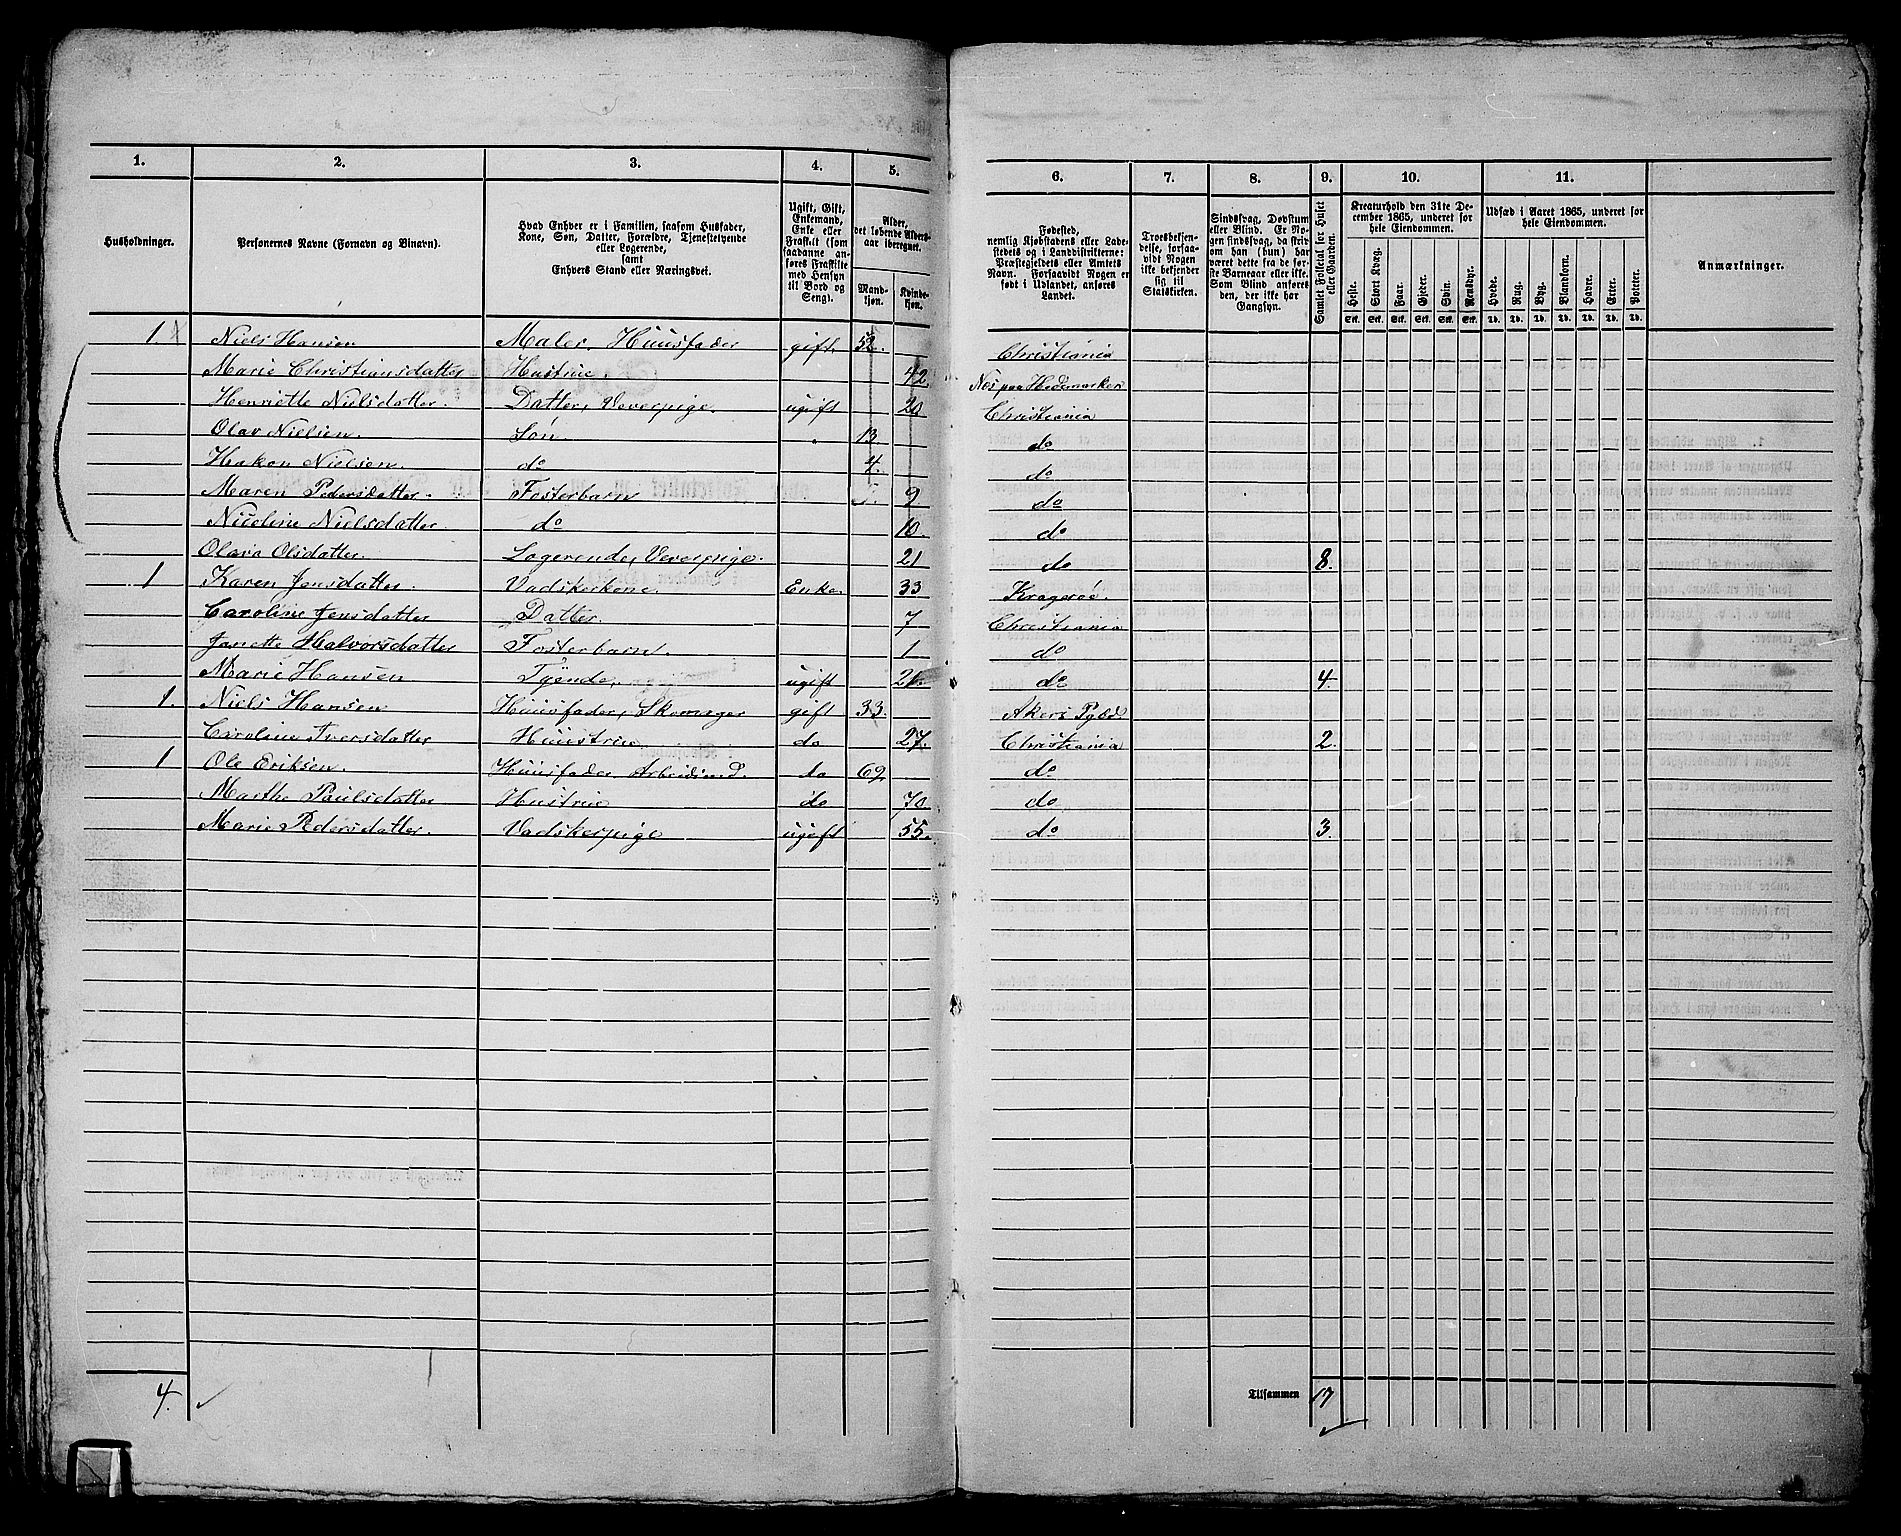 1. 2. 3. 4. 5. 6. 7. 8. 9. 10. 11.
Husholdninger.
Personernes Navne (Fornavn og Binavn).
Hvad Enhver er i Familien, saasom Husfader,
Kone, Søn, Datter, Forældre, Tjenestetyende
eller Logerende,
samt
Enhvers Stand eller Næringsvei.
Ugift, Gift,
Enkemand,
Enke eller
Fraskilt (som
saadanne an-
føres Fraskilte
med Hensyn
til Bord og
Seng).
Alder,
det løbende Alders-
aar iberegnet.
Mand-
kjøn.
Kvinde-
kjøn.
Fødested,
nemlig Kjøbstadens eller Lade-
stedets og i Landdistrikterne:
Præstegjeldets eller Amtets
Navn. Forsaavidt Nogen er
født i Udlandet, anføres
Landet.
Troesbekjen-
delse, forsaa-
vidt Nogen
ikke bekjender
sig til
Statskirken.
Sindssvag, Døvstum
eller Blind. Er No-
gen sindssvag, da skriv
om han (hun) har
været dette fra de før-
ste Barneaar eller ikke.
Som Blind anføres
den, der ikke har
Gangsyn.
Samlet Folketal for Huset
eller Gaarden.
Kreaturhold den 31te De-
cember 1865, underet for
hele Eiendommen.
Heste. Stort Kvæg. Faar. Gjeder. Svin. Rensdyr.
Stk. Stk. Stk. Stk. Stk. Stk.
Udsæd i Aaret 1865, underet for
hele Eiendommen.
Hvede. Rug. Byg. Blandkorn. Havre. Erter. Poteter.
Td. Td. Td. Td. Td. Td. Td.
Anmærkninger.
1. Niels Hansen Maler, Huusfader gift. 52. Christiania
Marie Christiansdatter Hustrue. 42. Nes paa Hedemarken
Henriette Nielsdatter. Datter, Veverpige. ugift 20 Christiania
Olav Nielsen. Søn. 13. do
Hakon Nielsen. do 4. do
Maren Pedersdatter. Fosterbarn 9 do
Nicoline Nielsdatter do 10. do
Olava Olsdatter. Logerende, Veverpige. 21 do 8.
1 Karen Jensdatter. Vadskerkone. Enke. 33 Kragerøe.
Caroline Jensdatter Datter. 7 Christiania
Janette Halvorsdatter Fosterbarn. 1 do
Marie Hansen Tyende. ugift 21. do 4.
1. Niels Hansen Huusfader, Skomager gift 33. Akers Pgjæd.
Caroline Iversdatter Huustrue. do 27. Christiania 2.
1 Ole Eriksen. Huusfader, Arbeidsmd. do 62. do
Marthe Paulsdatter Hustrue do 70 do
Marie Pedersdatter. Vadskerpige ugift 55. do 3.
4. Tilsammen 17